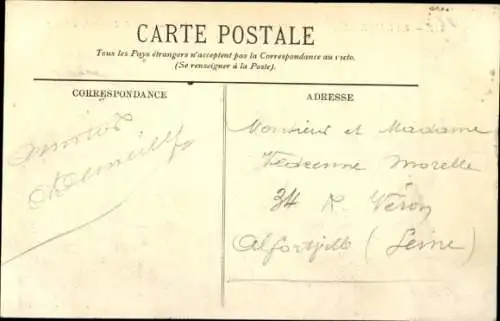 CARTE POSTALE
Tous les Pays étrangers n'acceptent pas la Correspondance au recto.
(Se renseigner à la Poste).
CORRESPONDANCE
ADRESSE
Monsieur et Madame
Morelle
34 R. Véron
Alfortville (Seine)